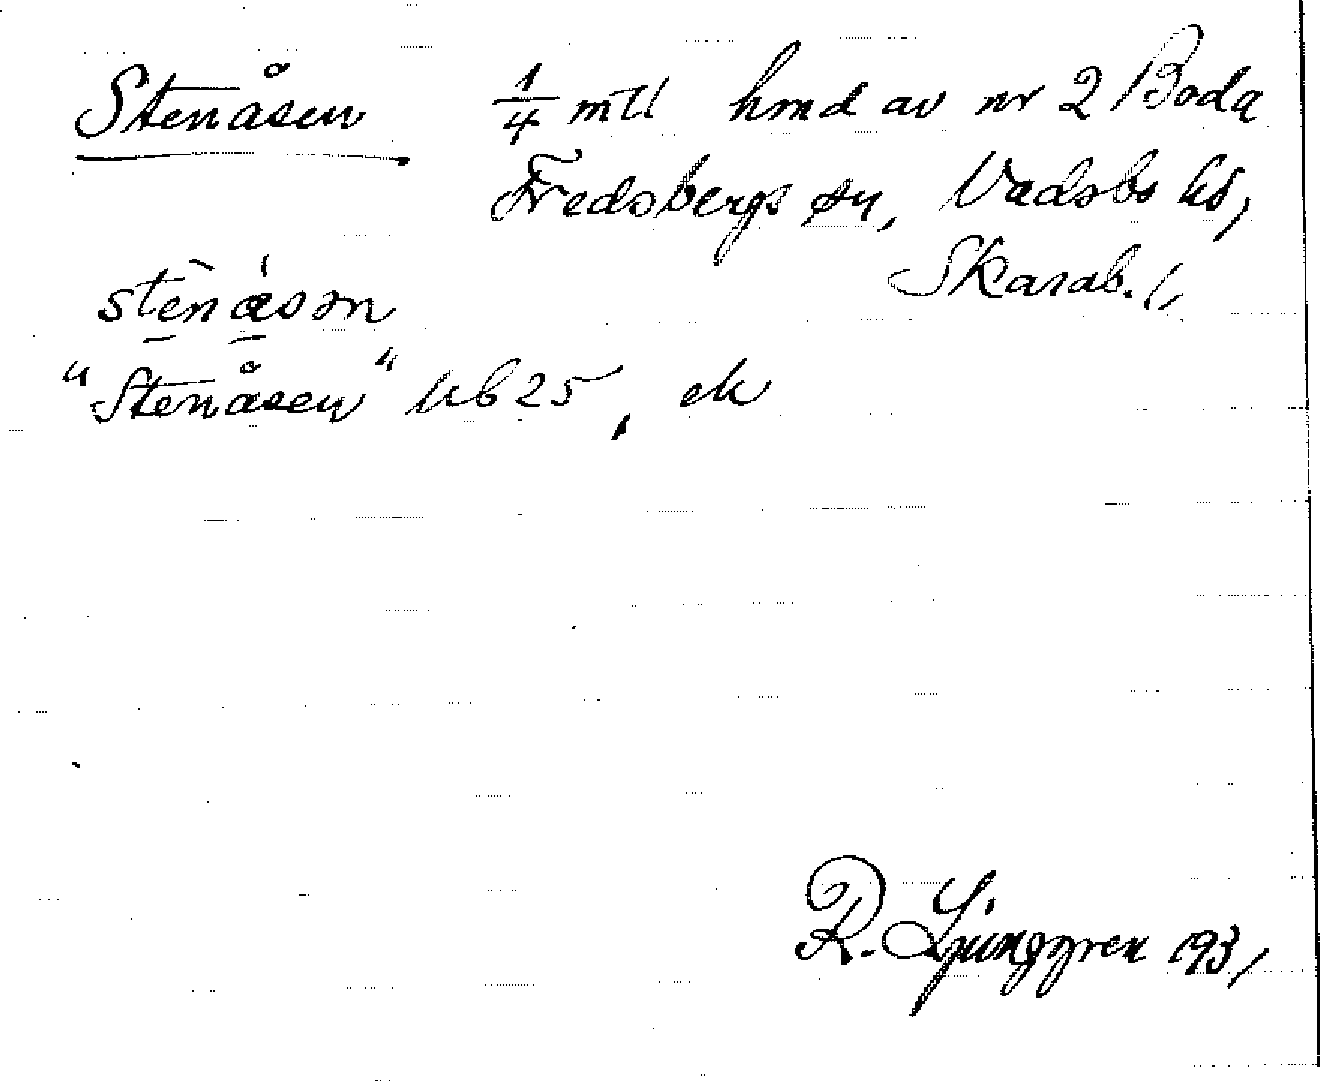 Stenåsen 1/4 mtl hmd av nr 2 Boda
Fredsbergs sn, Vadsbo hd,
Skarab. l,
stenåsən
"Stenåsen" kb 25, ek
R. Ljunggren 1931